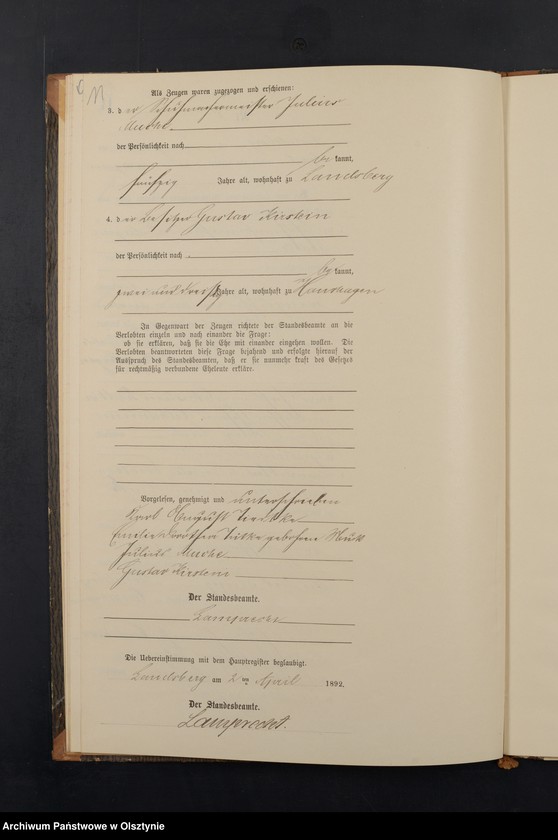 Als Zeugen waren zugezogen und erschienen:
3. der Schuhmachermeister Julius
der Persönlichkeit nach
be kannt,
fünfzig Jahre alt, wohnhaft zu Landsberg
4. der Besitzer Gustav Kirstein
der Persönlichkeit nach
be kannt,
zwei und dreißig Jahre alt, wohnhaft zu Hanshagen
In Gegenwart der Zeugen richtete der Standesbeamte an die
Verlobten einzeln und nach einander die Frage:
ob sie erklären, daß sie die Ehe mit einander eingehen wollen. Die
Verlobten beantworteten diese Frage bejahend und erfolgte hierauf der
Ausspruch des Standesbeamten, daß er sie nunmehr kraft des Gesetzes
für rechtmäßig verbundene Eheleute erkläre.
Vorgelesen, genehmigt und unterschrieben
Karl August
Emilie Dorothea geborene
Julius
Gustav Kirstein
Der Standesbeamte.
Lamprecht
Die Uebereinstimmung mit dem Hauptregister beglaubigt.
Landsberg am 2 ten April 1892.
Der Standesbeamte.
Lamprecht.
Archiwum Państwowe w Olsztynie